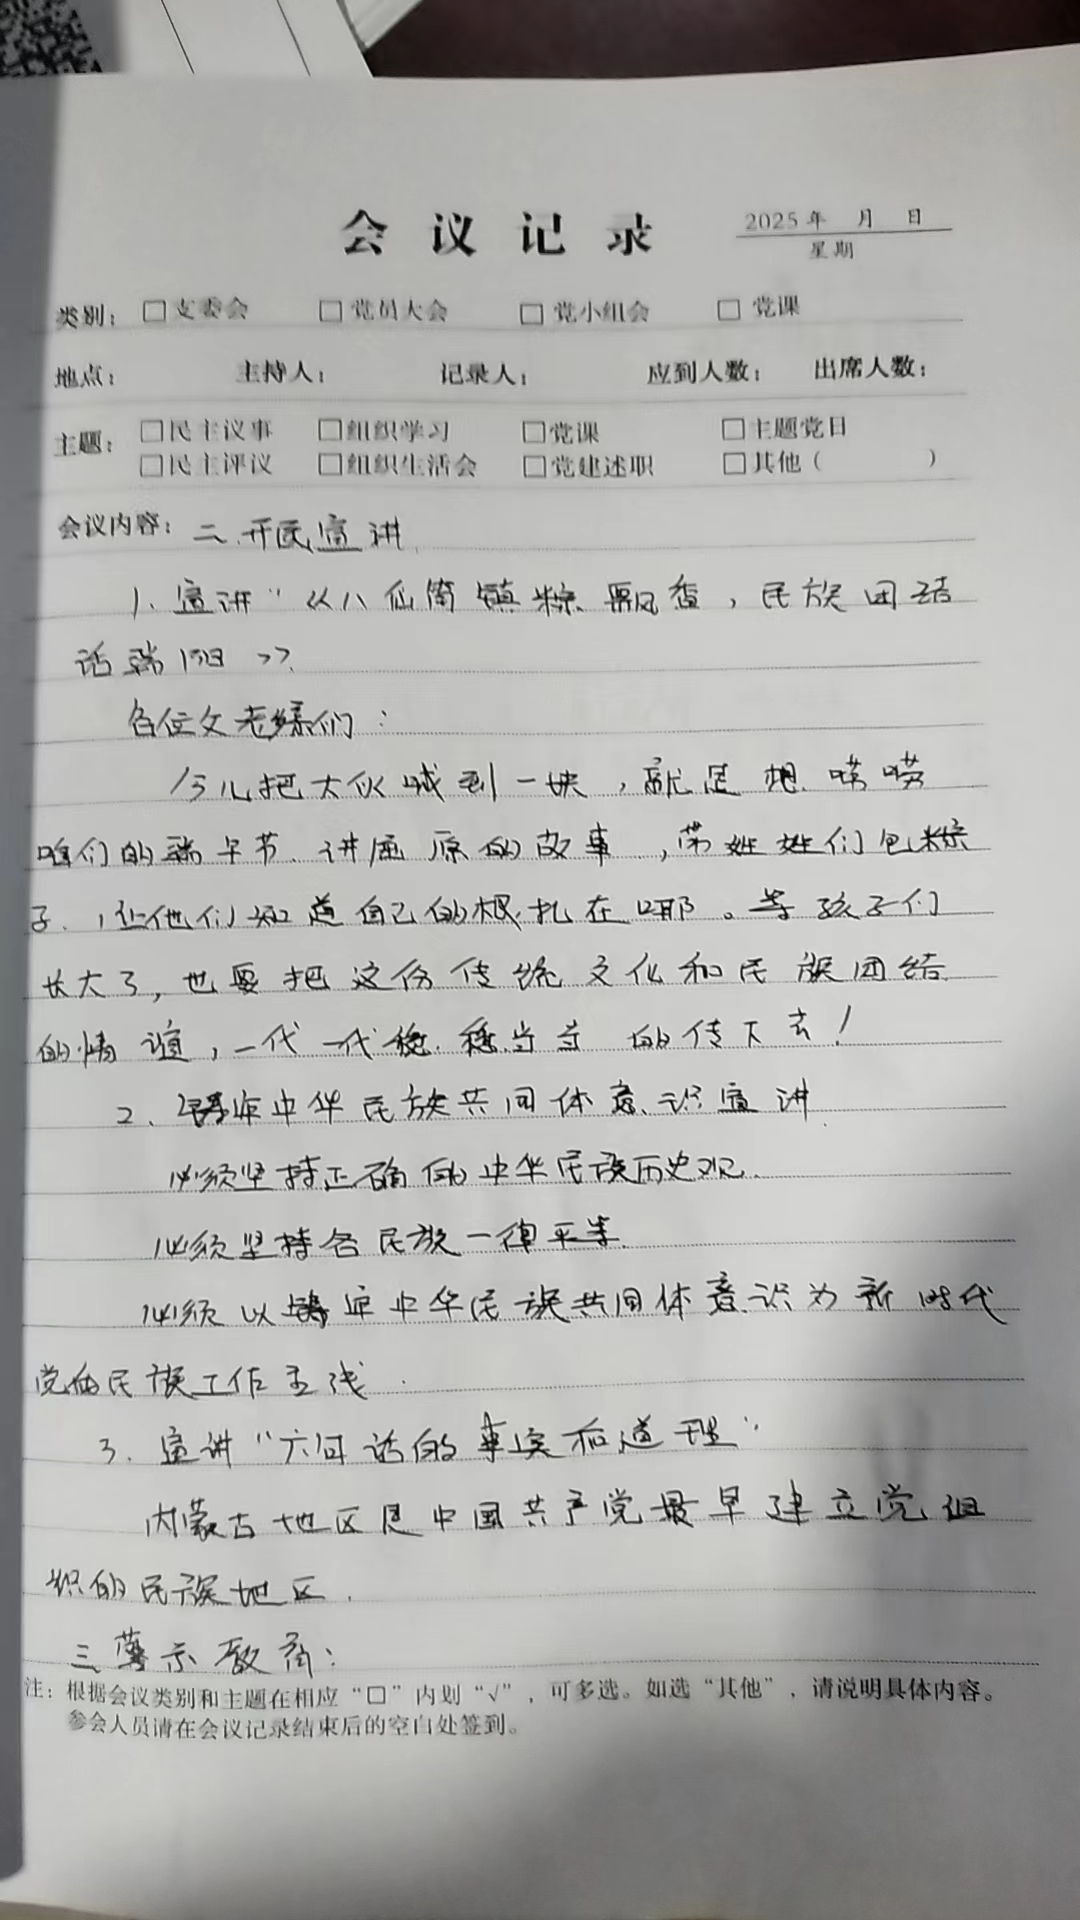 会议记录
2025年 月 日
星期
类别：□支委会 □党员大会 □党小组会 □党课
地点： 主持人： 记录人： 应到人数： 出席人数：
主题：□民主议事 □组织学习 □党课 □主题党日
□民主评议 □组织生活会 □党建述职 □其他（ ）
会议内容：二、开民宣讲
1、宣讲“从八仙筒镇粽飘香，民族团结
话端阳>>
各位父老乡亲们：
今儿把大伙喊到一块，就是想唠唠
咱们的端午节、讲屈原的故事，带娃娃们包粽
子，让他们知道自己的根扎在哪。等孩子们
长大了，也要把这份传统文化和民族团结
的情谊，一代一代稳稳当当的传下去！
2、铸牢中华民族共同体意识宣讲
必须坚持正确的中华民族历史观
必须坚持各民族一律平等
必须以铸牢中华民族共同体意识为新时代
党的民族工作主线
3、宣讲“六句话的事实和道理”
内蒙古地区是中国共产党最早建立党组
织的民族地区
三、警示教育：
注：根据会议类别和主题在相应“□”内划“√”，可多选。如选“其他”，请说明具体内容。
参会人员请在会议记录结束后的空白处签到。